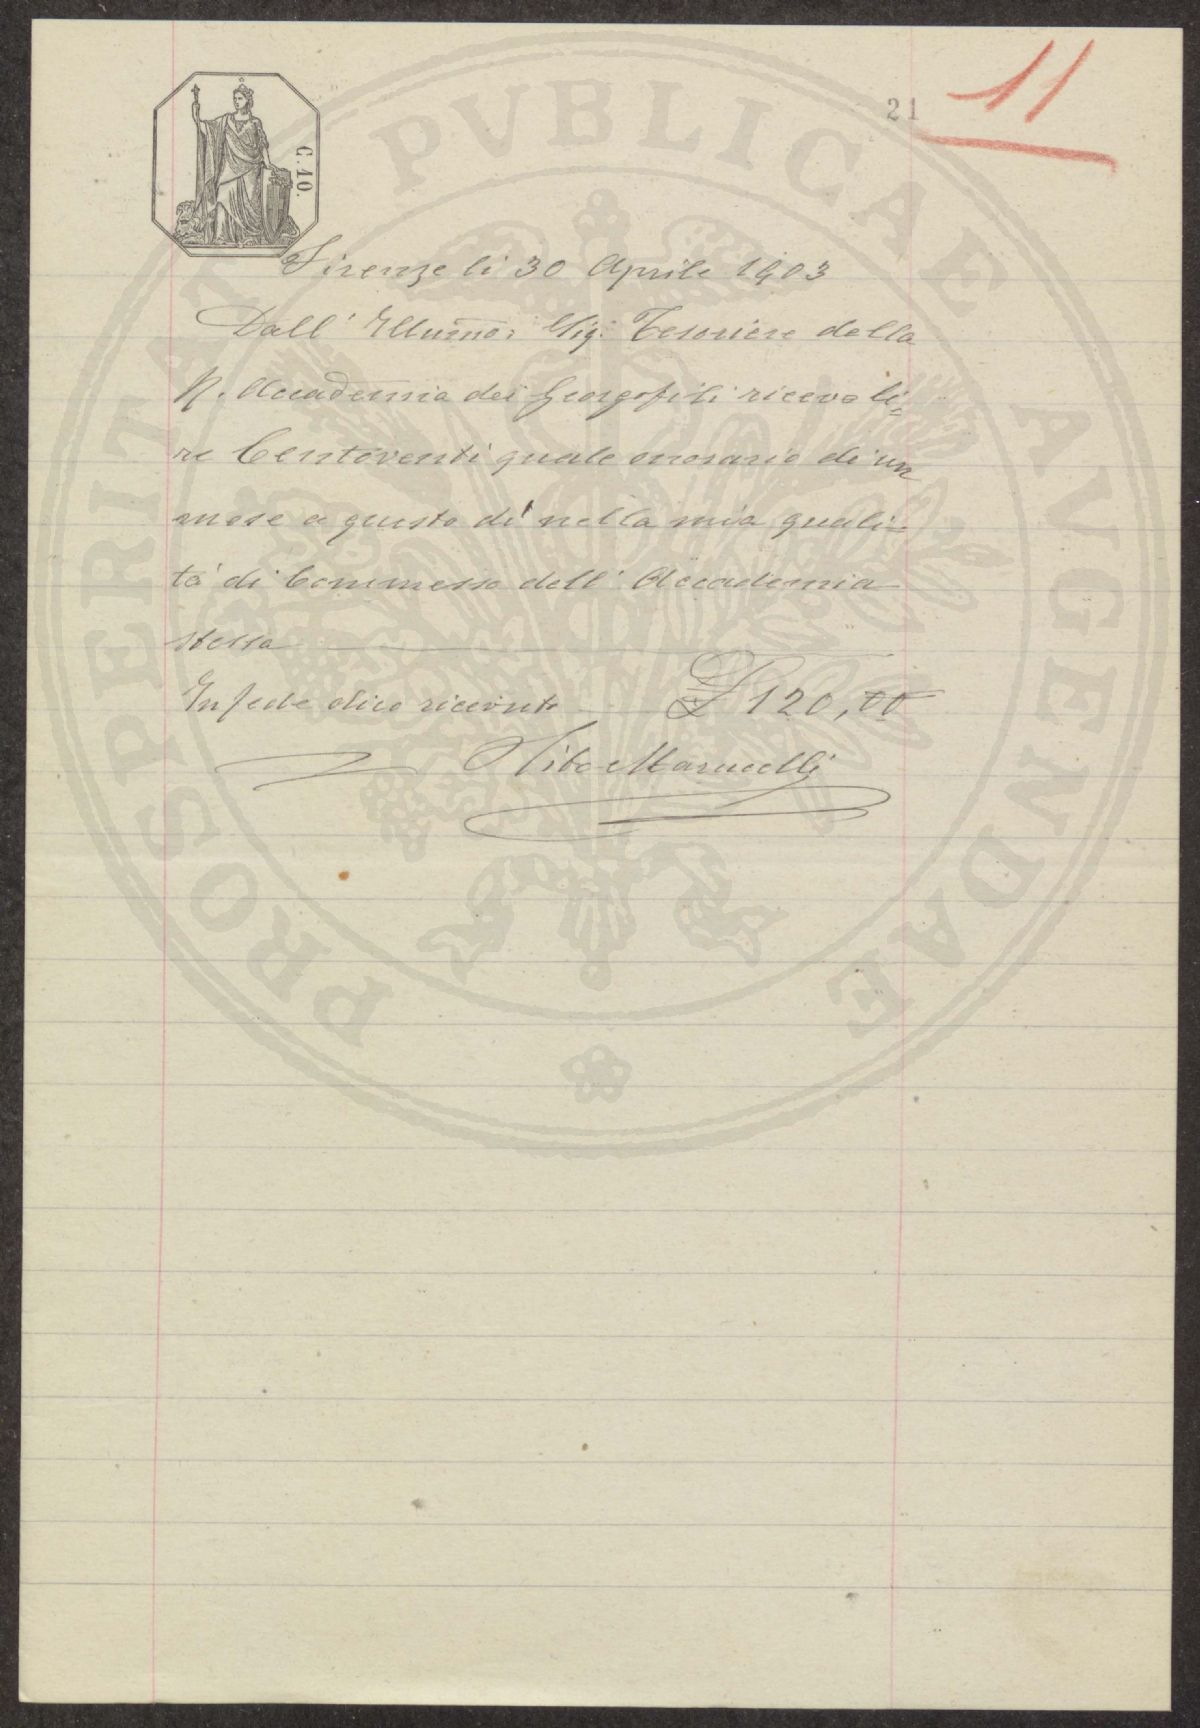 PROSPERITATI PVBLICAE AVGENDAE
C. 10.
21
11
Firenze li 30 Aprile 1903
Dall' Illumo: Sig: Tesoriere della
R. Accademia dei Georgofili ricevo li=
re Centoventi quale onorario di un
mese a questo dì nella mia quali=
tà di Commesso dell' Accademia
stessa
In fede dico ricevute £ 120,00
Tito Marucelli